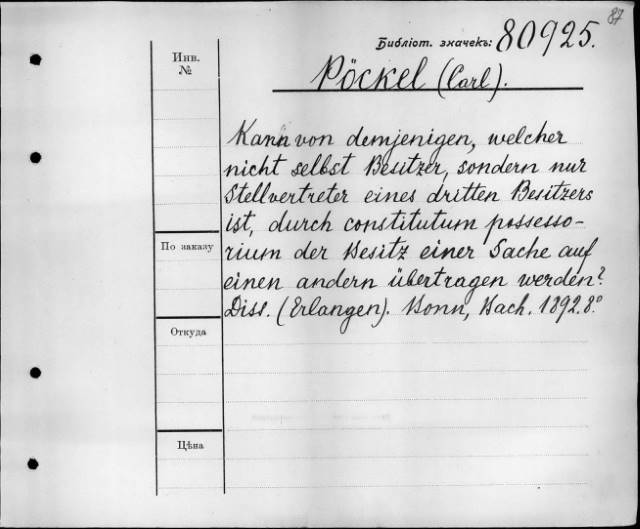 87
Библіот. значекъ: 80925.
Инв.
№
Pöckel (Carl).
Kann von demjenigen, welcher
nicht selbst Besitzer, sondern nur
Stellvertreter eines dritten Besitzers
ist, durch constitutum possesso-
rium der Besitz einer Sache auf
einen andern übertragen werden?
Diss. (Erlangen). Bonn, Bach. 1892. 8.º
По заказу
Откуда
Цѣна